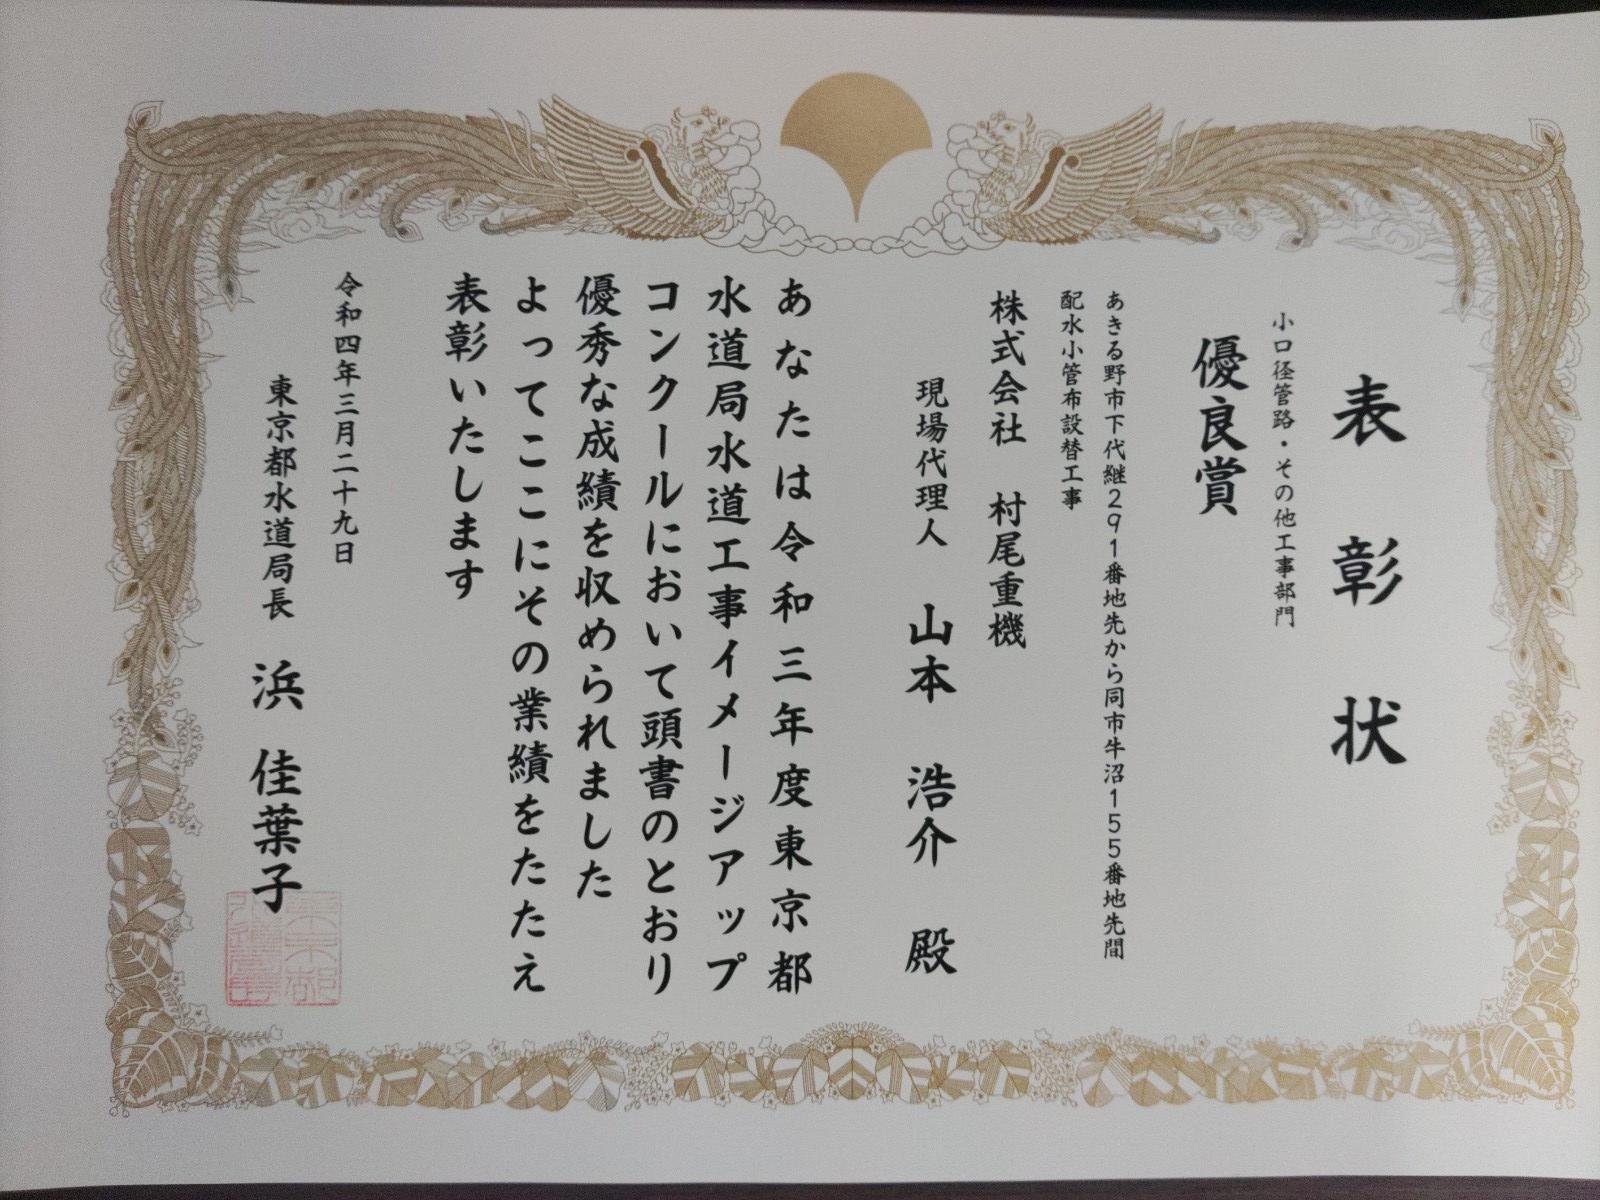 表彰状
小口径管路・その他工事部門
優良賞
あきる野市下代継291番地先から同市牛沼155番地先間
配水小管布設替工事
株式会社 村尾重機
現場代理人 山本 浩介 殿
あなたは令和三年度東京都
水道局水道工事イメージアップ
コンクールにおいて頭書のとおり
優秀な成績を収められました
よってここにその業績をたたえ
表彰いたします
令和四年三月二十九日
東京都水道局長 浜 佳葉子